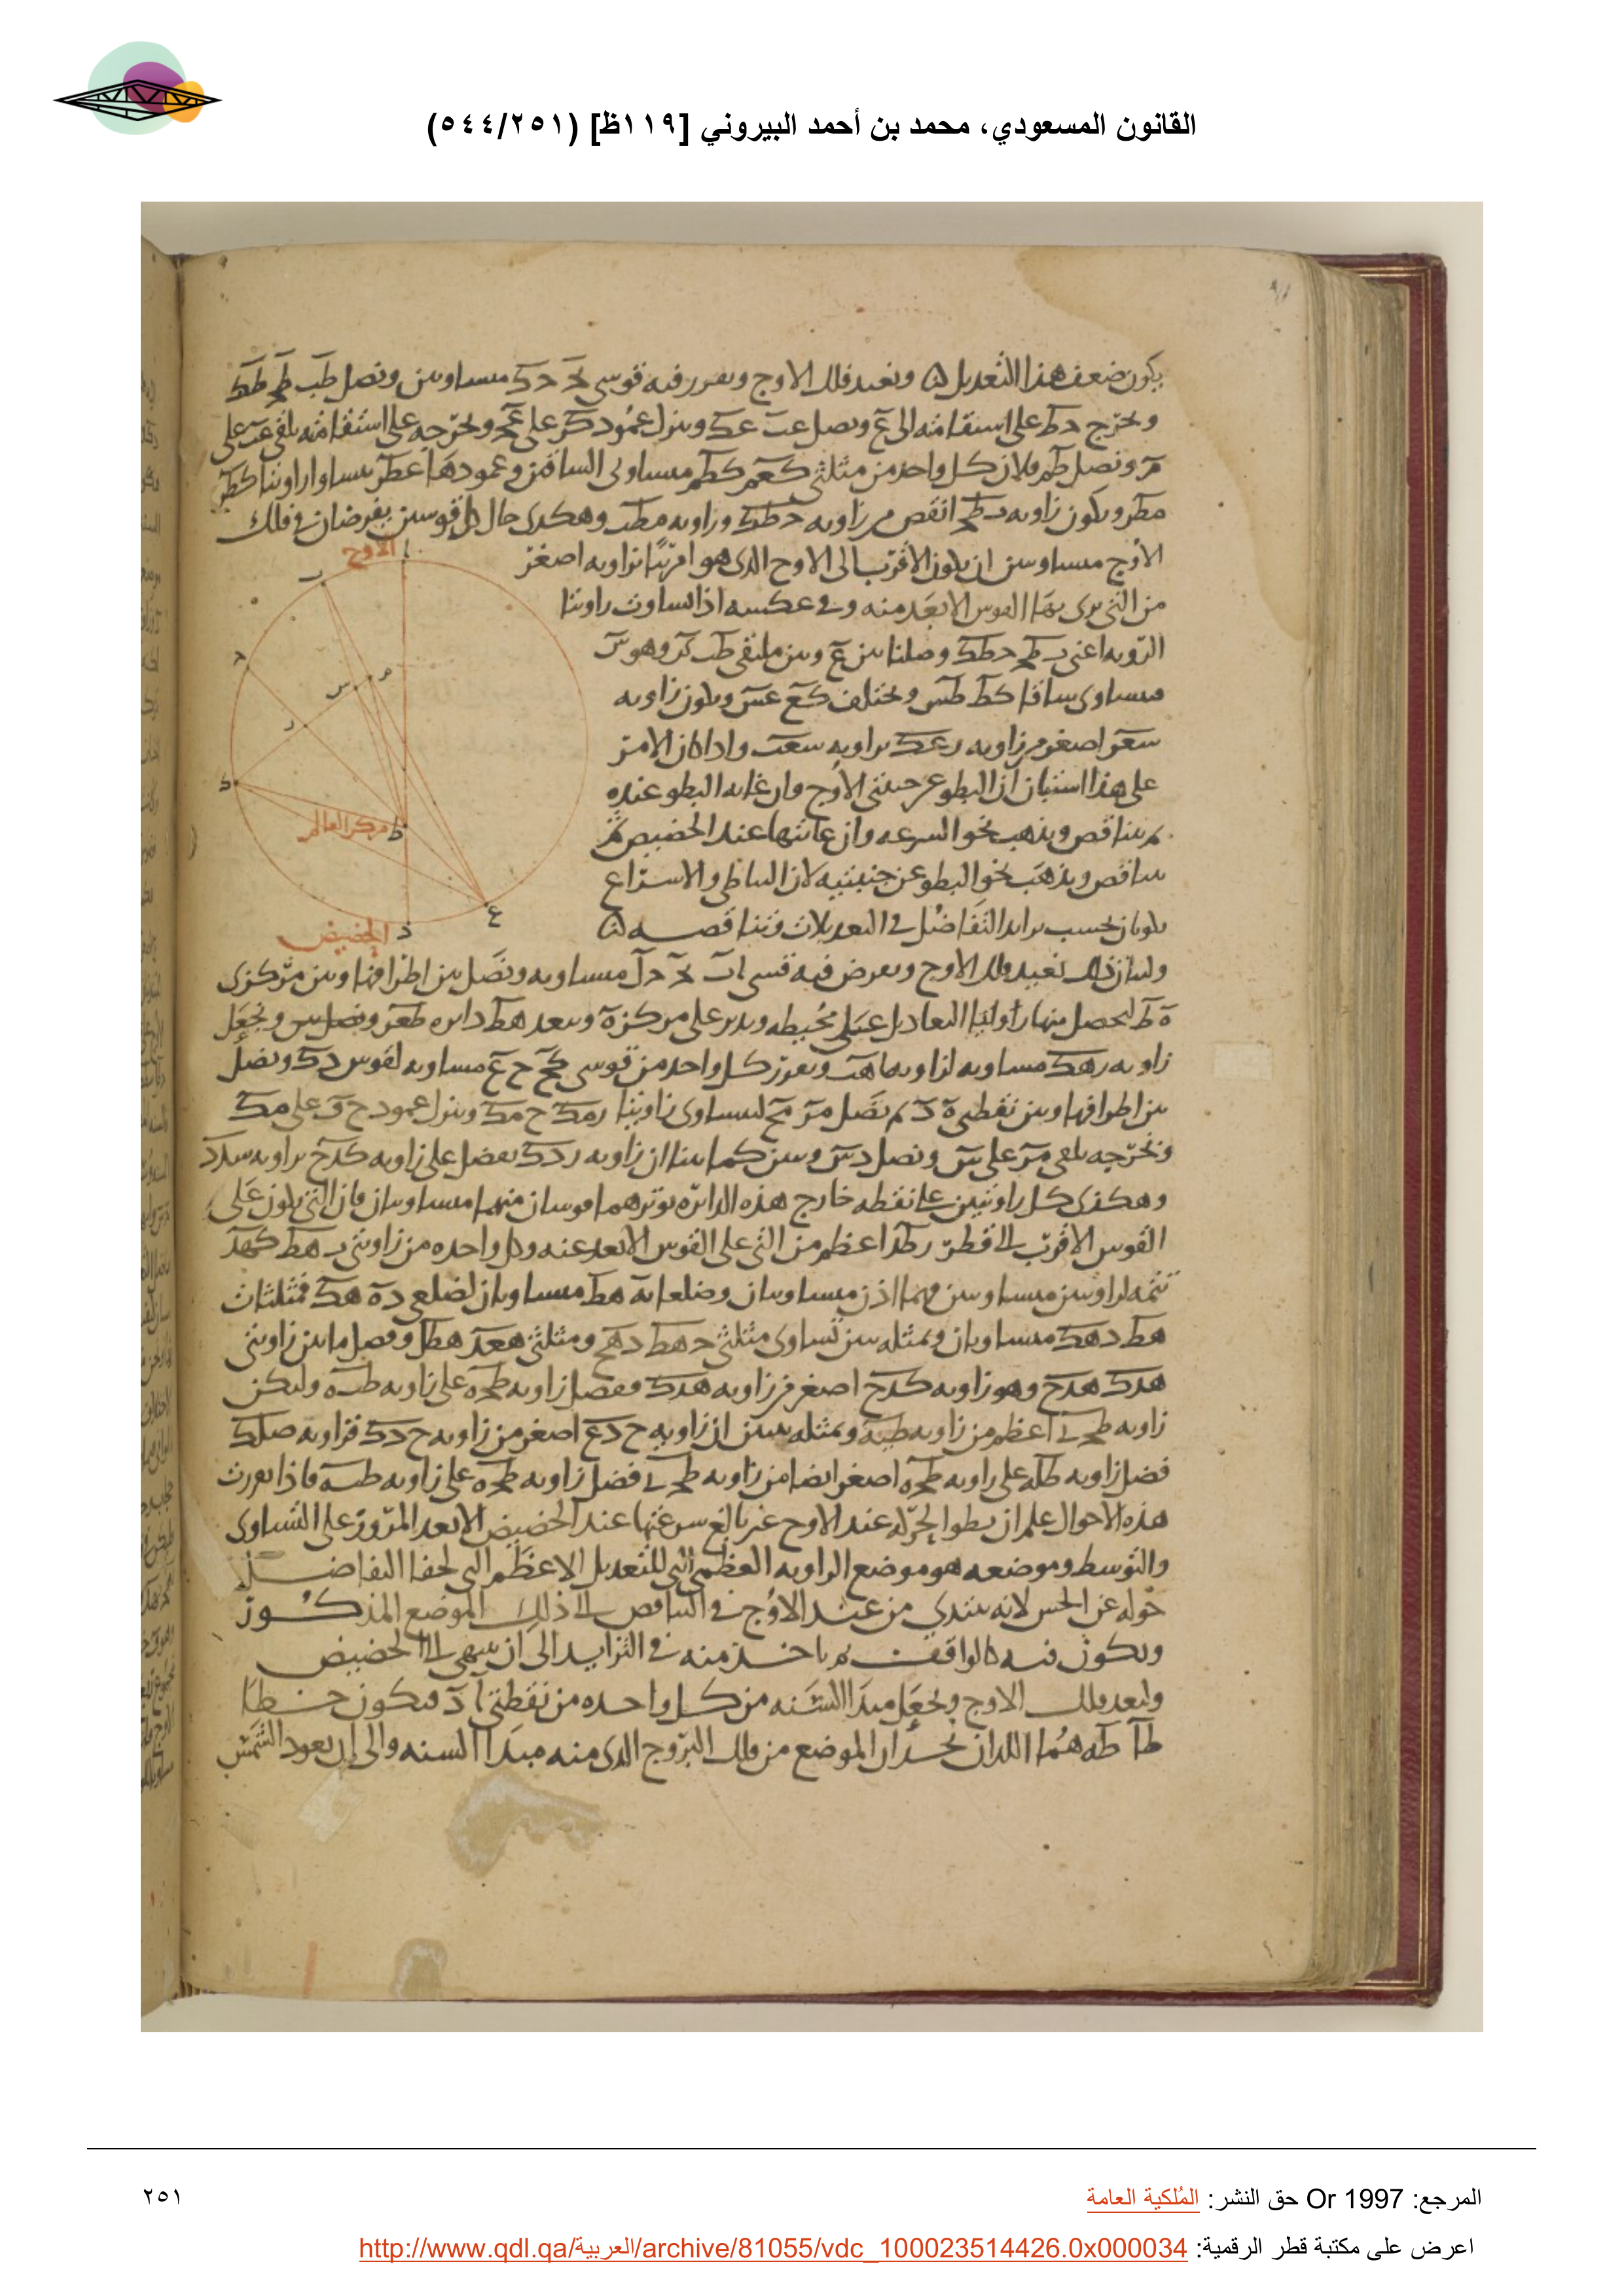 القانون المسعودي، محمد بن أحمد البيروني [١١٩ظ] (٥٤٤/٢٥١)
يكون ضعف هذا التعديل ونعيد فلك الاوج ونفرز فيه قوسي بج دك متساويتين ونصل طب طج طك
ونخرج دط على استقامته الى ع ونصل عب عك وننزل عمود كر على عج ونخرجه على استقامته يلقى عب على
م ونصل طم فلان كل واحد من مثلثي كعم كطم متساوي الساقين وعمودهما عطر يتساوا زاويتا كطر
مطر ويكون زاويه بطج انقص من زاويه دطك وزاويه مطب وهكذى حال كل قوسين يفرضان في فلك
الاوج متساويتين ان يكون الاقرب الى الاوج الذى هو ا مرئيا بزاويه اصغر
من التى يرى بها القوس الابعد منه وفي عكسه اذا تساوت زاويتا
الرويه اعنى بطج دطك وصلنا بين ع وبين ملتقى طب كر وهو س
فيتساوى ساقا كط طس ويختلف كع عس ويكون زاويه
سعر اصغر من زاويه رعك بزاويه سعب واذا كان الامر
على هذا استبان ان البطو عن جنبتى الاوج وان غايه البطو عنده
ثم يتناقص ويذهب نحو السرعه وان غايتها عند الحضيض ثم
يتناقص ويذهب نحو البطو عن جنبتيه لان التباطى والاسراع
يكونان بحسب تزايد التفاضل في التعديلات وتناقصه
الاوج
ا
ب
ج
م
س
ر
ك
ط
مركز العالم
ع
د
الحضيض
ولبيان ذلك نعيد فلك الاوج ونفرض فيه قسى اب بج دل متساويه ونصل بين اطرافها وبين مركزى
ه ط ليحصل منها زوايا التعاديل على محيطه وندير على مركز ه وببعد هط دايره طعر ونجعل
زاويه رهك مساويه لزاويه اهب ونفرز كل واحد من قوسى كح ح ع مساويه لقوس رك ونصل
بين اطرافها وبين نقطتى ه د ثم نصل مر مح ليتساوى زاويتا رمك ح مك وننزل عمود ح ف على مك
ونخرجه يلقى مر على س ونصل دس وبين كما بينا ان زاويه ردك يفضل على زاويه كدح بزاويه سدر
وهكذى كل زاويتين على نقطه خارج هذه الدائره يوترهما قوسان منها متساويتان فان التى يكون على
القوس الاقرب الى قطر رطد اعظم من التى على القوس الابعد عنه وكل واحده من زاويتى بهط كهد
تتمه لزاويتين متساويتين فهما اذن متساويتان وضلعا به هط مساويان لضلعى ده هك فمثلثا
بهط دهك متساويان وبمثله يتبين تساوى مثلثى جهط دهح ومثلثى هعد هطل وفصل ما بين زاويتى
هدك هدح وهو زاويه كدح اصغر من زاويه هدك وفضل زاويه طجه على زاويه طبه وليكن
زاويه طجى اعظم من زاويه طبه وبمثله يتبين ان زاويه ح دع اصغر من زاويه ح دك
فضل زاويه طله على زاويه طجه اصغر ايضا من زاويه طجى فضل زاويه طجه على زاويه طبه فاذا تقررت
هذه الاحوال علم ان بطو الحركه عند الاوج غير بالغ سرعتها عند الحضيض الابعد المرور على التساوى
والتوسط وموضعه هو موضع الزاويه العظمى التى للتعديل الاعظم التى يخفا التفاضل
حوله عن الحس لانه يبتدى من عند الاوج في التناقص الى ذلك الموضع المذكور
ويكون فيه كالواقف ثم ياخذ منه في التزايد الى ان ينتهى الى الحضيض
وليعد فلك الاوج ونجعل مبدا السنه من كل واحده من نقطتى ا د فيكون خطا
طا طه هما اللذان يحدان الموضع من فلك البروج الذى منه مبدا السنه والى ان يعود الشمس
المرجع: Or 1997 حق النشر: المُلكية العامة
٢٥١
اعرض على مكتبة قطر الرقمية: http://www.qdl.qa/العربية/archive/81055/vdc_100023514426.0x000034